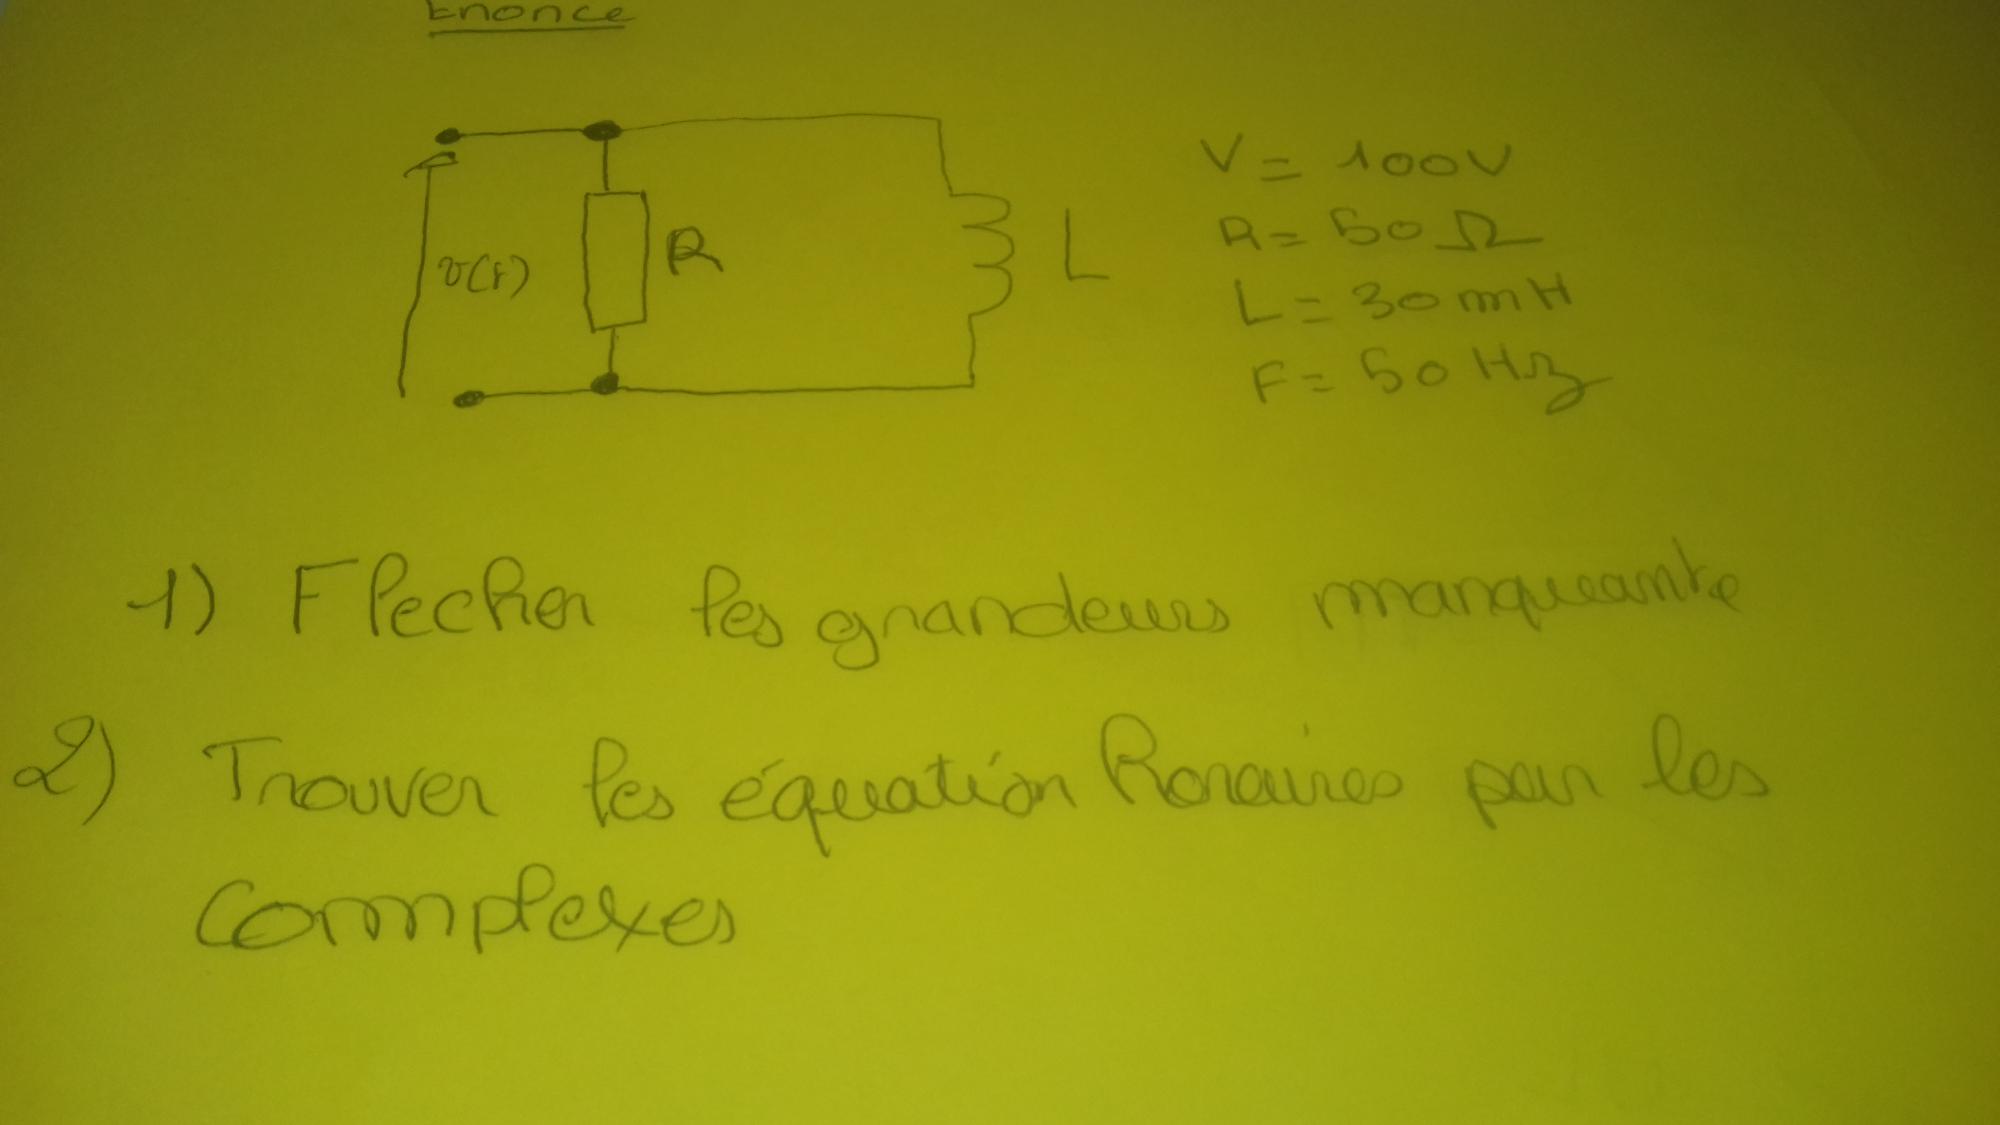 Enonce
v(t)
R
L
V = 100V
R = 50 Ω
L = 30 mH
F = 50 Hz
1) Flecher les grandeurs manqueante
2) Trouver les équation horaires par les
complexes